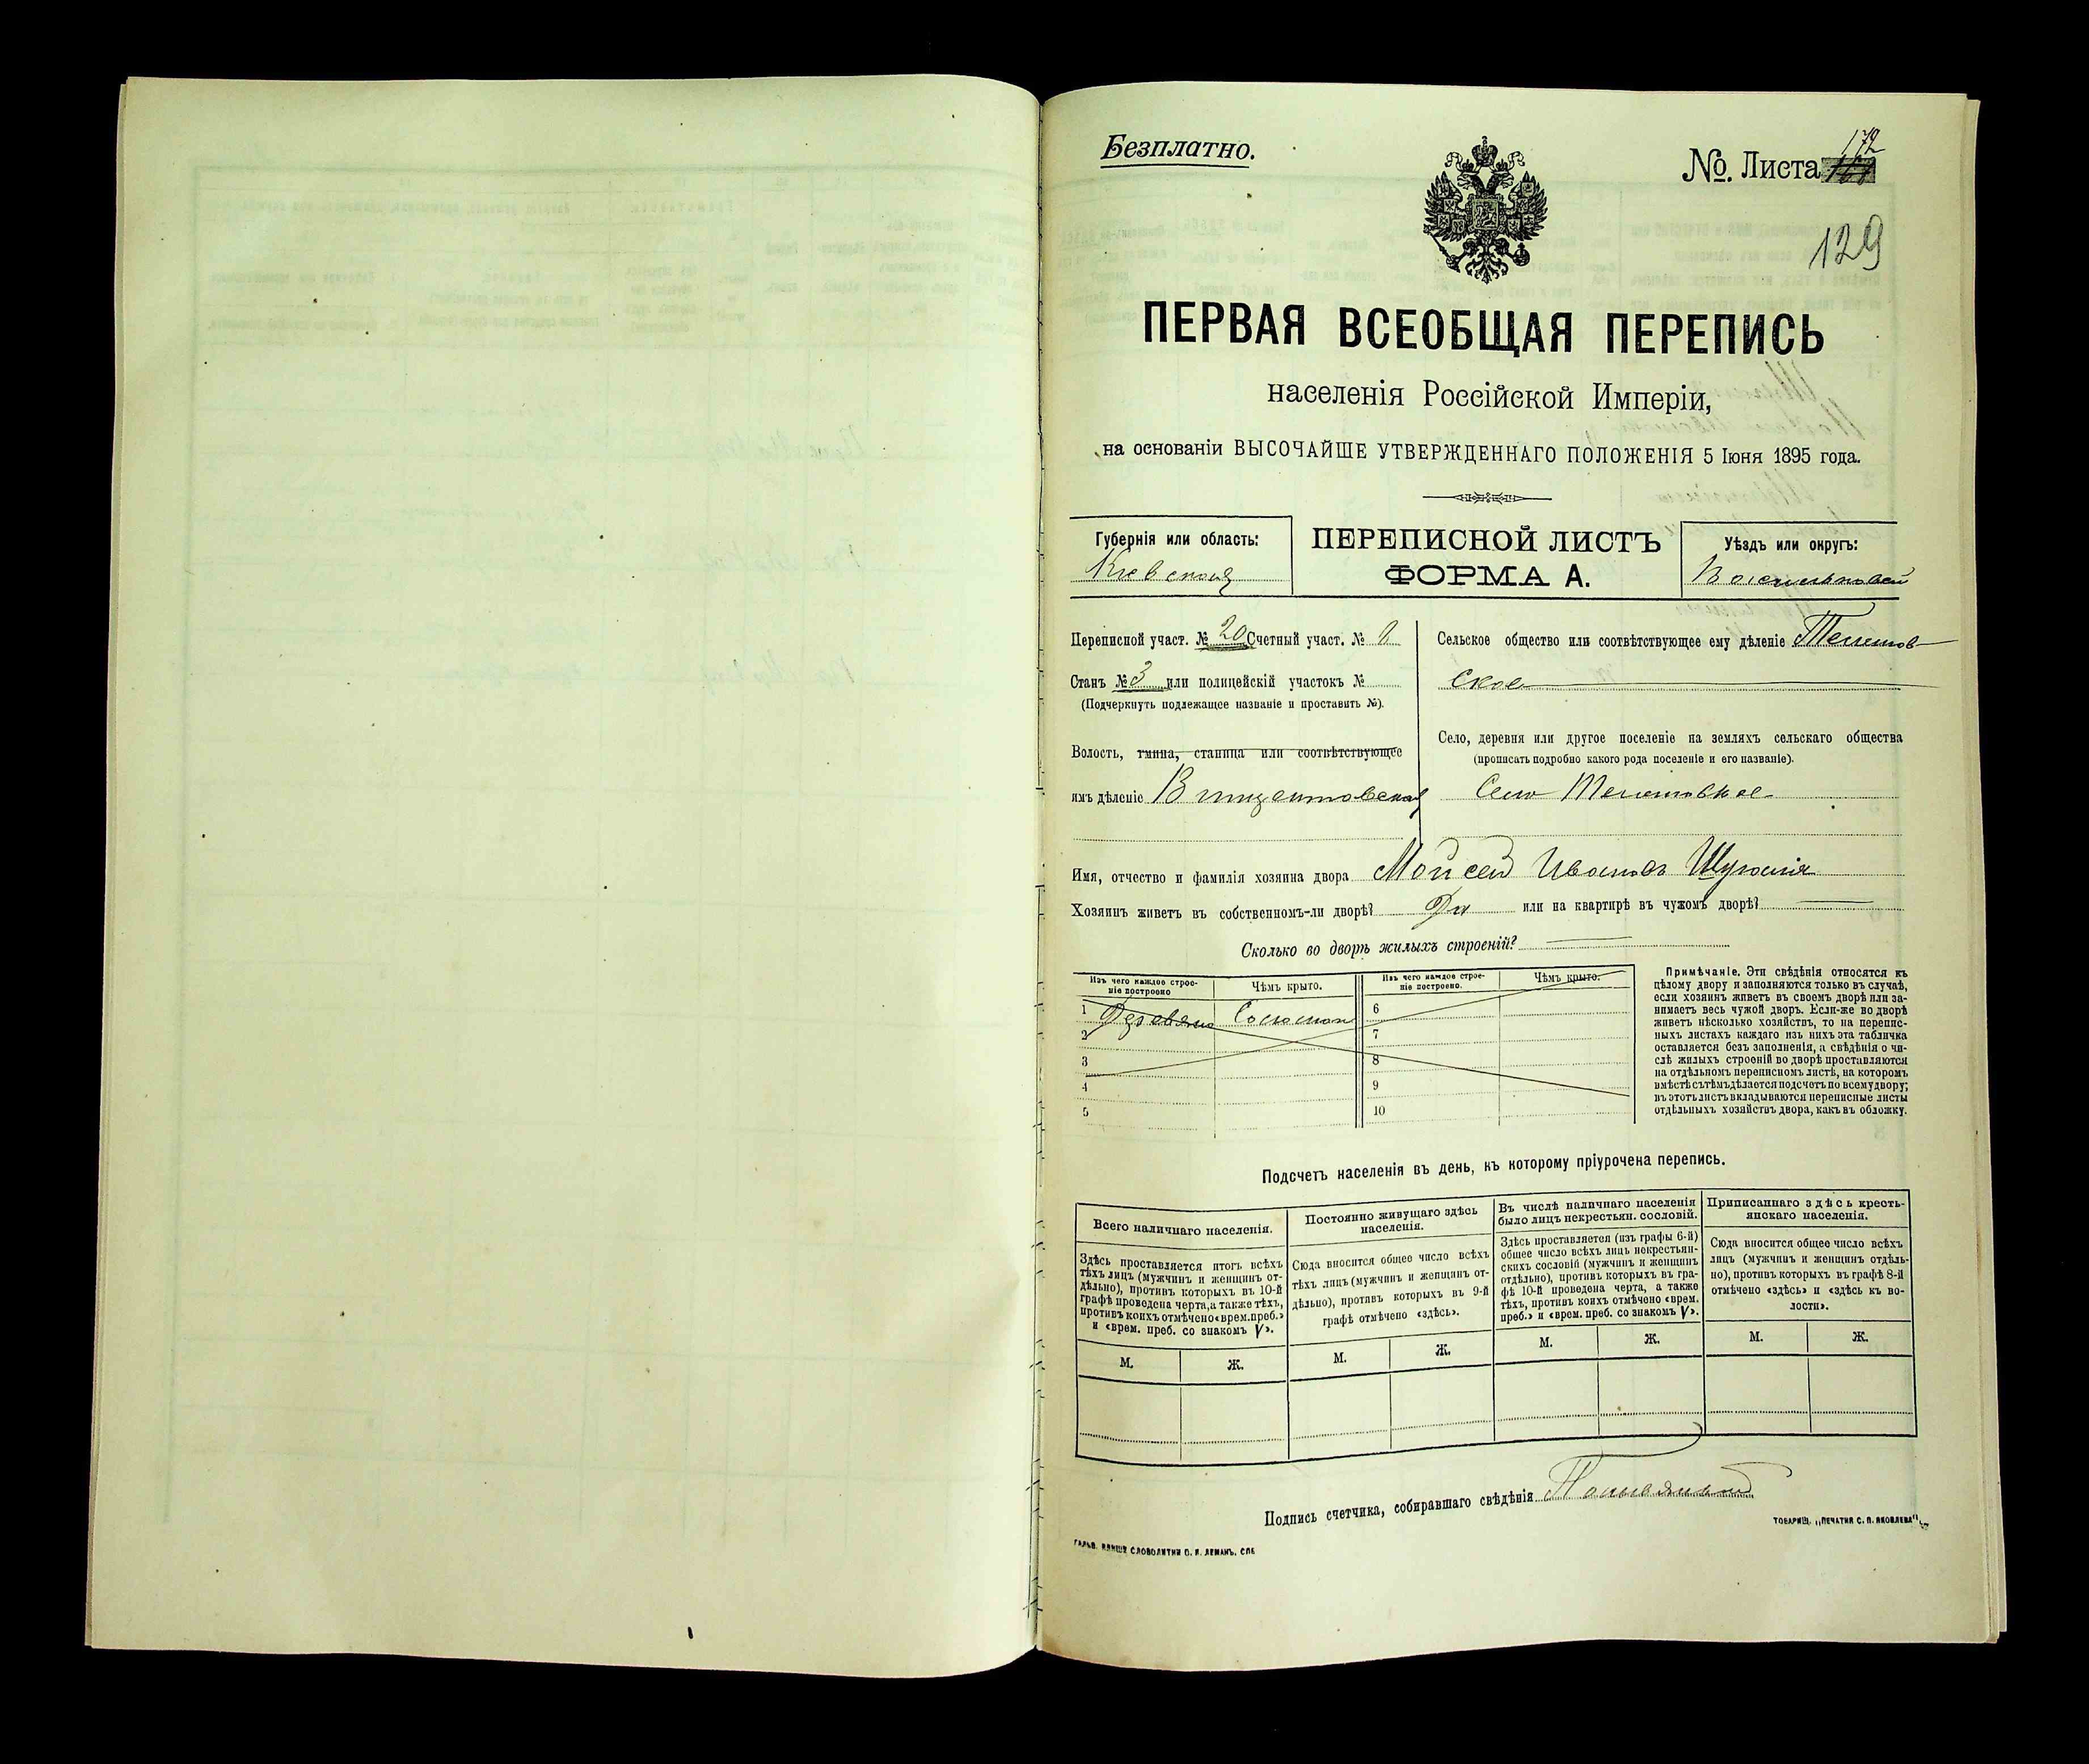 Безплатно.
№. Листа 172
129
ПЕРВАЯ ВСЕОБЩАЯ ПЕРЕПИСЬ
населенія Россійской Имперіи,
на основаніи ВЫСОЧАЙШЕ УТВЕРЖДЕННАГО ПОЛОЖЕНІЯ 5 Іюня 1895 года.
Губернія или область:
Кіевская
ПЕРЕПИСНОЙ ЛИСТЪ
ФОРМА А.
Уѣздъ или округъ:
Васильковскій
Переписной участ. № 20 Счетный участ. №
Станъ № 3 или полицейскій участокъ №
(Подчеркнуть подлежащее названіе и проставить №).
Волость, гмина, станица или соотвѣтствующее
имъ дѣленіе Винцентовская
Сельское общество или соотвѣтствующее ему дѣленіе
ское
Село, деревня или другое поселеніе на земляхъ сельскаго общества
(прописать подробно какого рода поселеніе и его названіе).
Село
Имя, отчество и фамилія хозяина двора Мойсей Ивановъ
Хозяинъ живетъ въ собственномъ-ли дворѣ? Да или на квартирѣ въ чужомъ дворѣ?
Сколько во дворѣ жилыхъ строеній?
Изъ чего каждое строе-
ніе построено
Чѣмъ крыто.
Изъ чего каждое строе-
ніе построено.
Чѣмъ крыто.
1 Деревяно Соломой
2
3
4
5
6
7
8
9
10
Примѣчаніе. Эти свѣдѣнія относятся къ
цѣлому двору и заполняются только въ случаѣ,
если хозяинъ живетъ въ своемъ дворѣ или за-
нимаетъ весь чужой дворъ. Если-же во дворѣ
живетъ нѣсколько хозяйствъ, то на перепис-
ныхъ листахъ каждаго изъ нихъ эта табличка
оставляется безъ заполненія, а свѣдѣнія о чи-
слѣ жилыхъ строеній во дворѣ проставляются
на отдѣльномъ переписномъ листѣ, на которомъ
вмѣстѣ съ тѣмъ дѣлается подсчетъ по всему двору;
въ этотъ листъ вкладываются переписные листы
отдѣльныхъ хозяйствъ двора, какъ въ обложку.
Подсчетъ населенія въ день, къ которому пріурочена перепись.
Всего наличнаго населенія.
Здѣсь проставляется итогъ всѣхъ
тѣхъ лицъ (мужчинъ и женщинъ от-
дѣльно), противъ которыхъ въ 10-й
графѣ проведена черта, а также тѣхъ,
противъ коихъ отмѣчено «врем. преб.»
и «врем. преб. со знакомъ V».
М. Ж.
Постоянно живущаго здѣсь
населенія.
Сюда вносится общее число всѣхъ
тѣхъ лицъ (мужчинъ и женщинъ от-
дѣльно), противъ которыхъ въ 9-й
графѣ отмѣчено «здѣсь».
М. Ж.
Въ числѣ наличнаго населенія
было лицъ некрестьян. сословій.
Здѣсь проставляется (изъ графы 6-й)
общее число всѣхъ лицъ некрестьян-
скихъ сословій (мужчинъ и женщинъ
отдѣльно), противъ которыхъ въ гра-
фѣ 10-й проведена черта, а также
тѣхъ, противъ коихъ отмѣчено «врем.
преб.» и «врем. преб. со знакомъ V».
М. Ж.
Приписаннаго здѣсь кресть-
янскаго населенія.
Сюда вносится общее число всѣхъ
лицъ (мужчинъ и женщинъ отдѣль-
но), противъ которыхъ въ графѣ 8-й
отмѣчено «здѣсь» и «здѣсь къ во-
лости».
М. Ж.
Подпись счетчика, собиравшаго свѣдѣнія
ТОВАРИЩ. „ПЕЧАТНЯ С. П. ЯКОВЛЕВА".
СЛОВОЛИТНИ О. И. ЛЕМАНЪ, СПБ